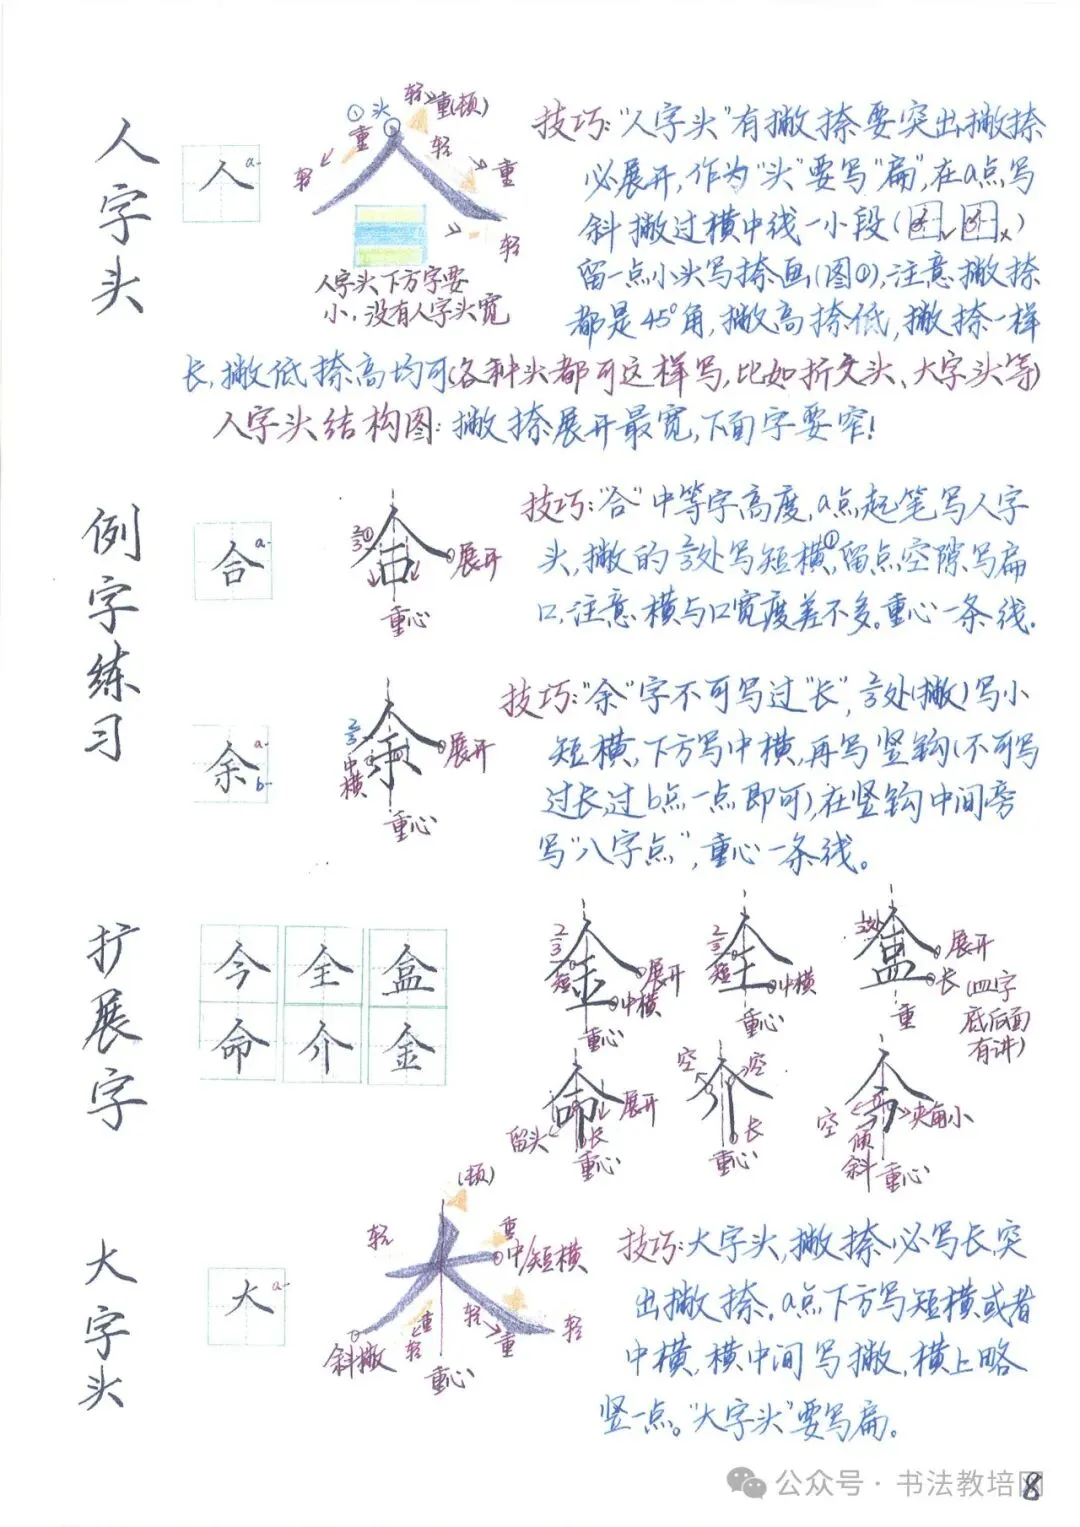 人字头
人
a
①头
轻 重(顿)
重 轻
轻 重
轻
人字头下方字要
小,没有人字头宽
技巧:"人字头"有撇捺要突出撇捺
必展开,作为"头"要写"扁",在a点写
斜撇过横中线一小段(
留一点小头写捺画(图①),注意撇捺
都是45°角,撇高捺低,撇捺一样
长,撇低捺高均可(各种头都可这样写,比如折文头、大字头等)
人字头结构图:撇捺展开最宽,下面字要窄!
例字练习
合
a
2/3 ①
展开
重心
技巧:"合"中等字高度,a点起笔写人字
头,撇的2/3处写短横①,留点空隙写扁
口,注意横与口宽度差不多。重心一条线.
余
a
b
2/3
中横
展开
重心
技巧:"余"字不可写过"长",2/3处(撇)写小
短横,下方写中横,再写竖钩(不可写
过长,过b点一点即可),在竖钩中间旁
写"八字点",重心一条线。
扩展字
今 全 盒
命 介 金
2/3
短
展开
中横
重心
2/3
短
中横
重心
展开
长
(皿字
底后面
有讲)
重
展开
留头
长
重心
空 空
长
重心
空
倾斜
夹角小
重心
大字头
大
a
(顿)
轻 重
中/短横
轻 重
轻
重
轻
斜撇
重心
技巧:大字头,撇捺必写长,突
出撇捺.a点下方写短横或者
中横,横中间写撇,横上略
竖一点。"大字头"要写扁。
公众号·书法教培
8